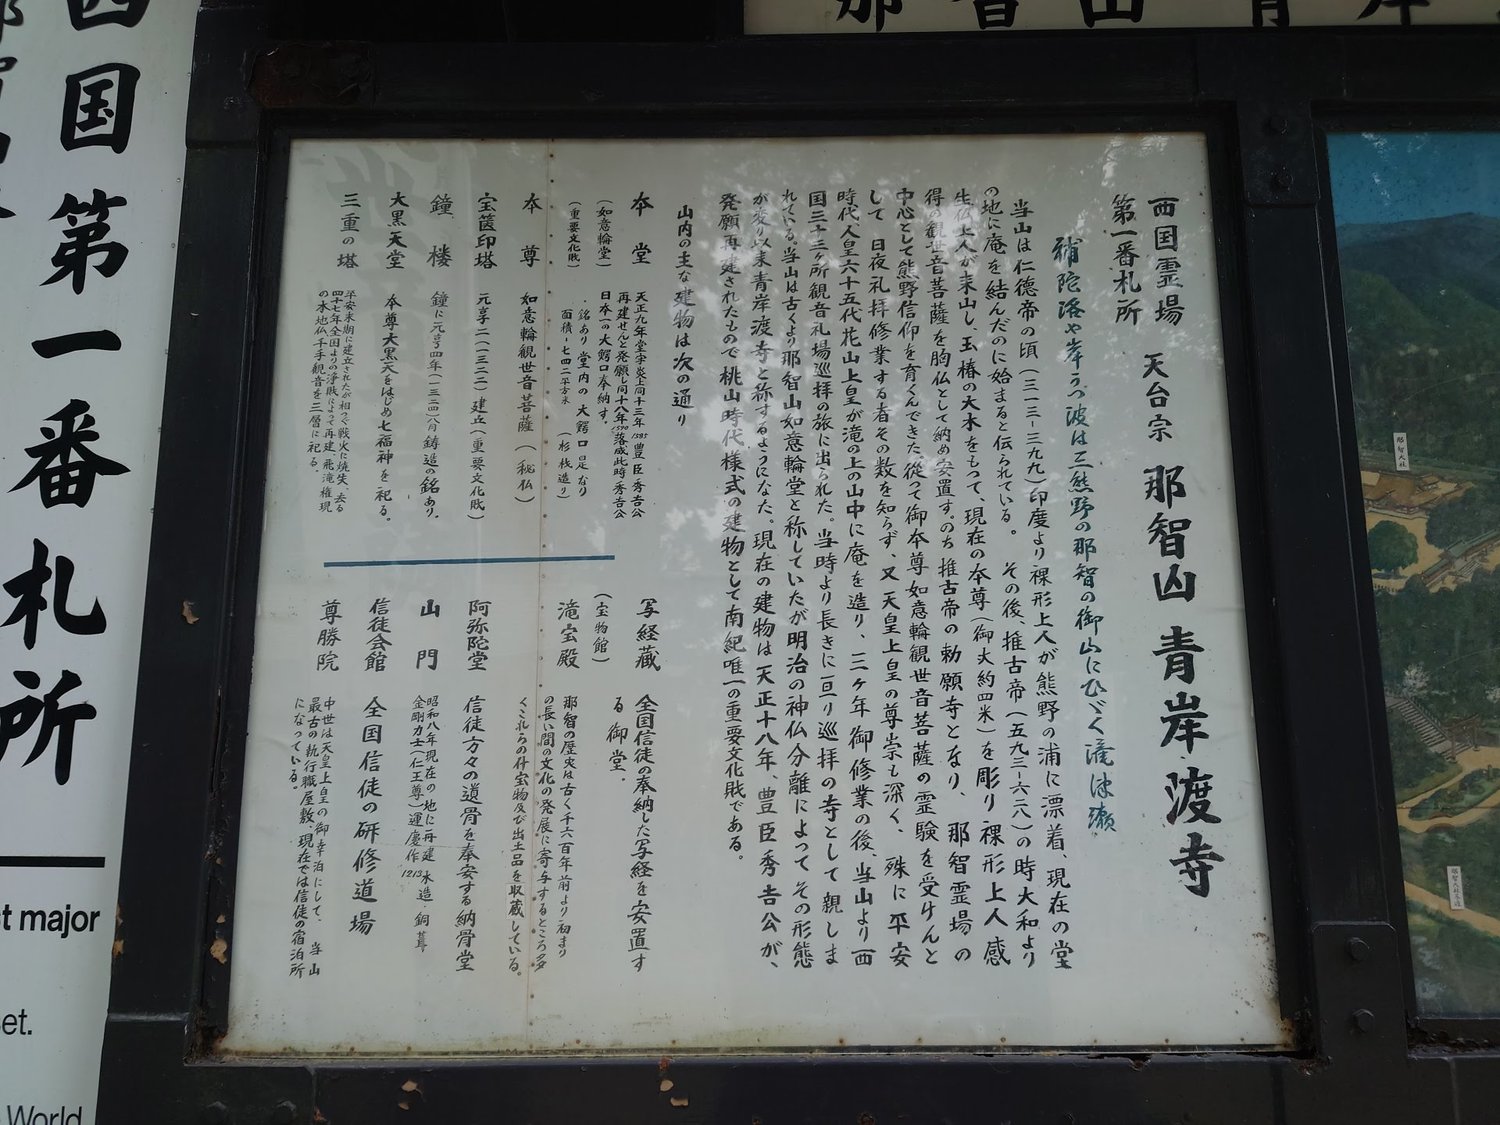 西国霊場
第一番札所
天台宗 那智山 青岸渡寺
補陀洛や岸うつ波は三熊野の那智の御山にひゞく滝津瀬
当山は仁徳帝の頃(三一三-三九九)印度より裸形上人が熊野の浦に漂着、現在の堂
の地に庵を結んだのに始まると伝られている。 その後、推古帝(五九三-六二八)の時大和より
生仏上人が来山し、玉椿の大木をもって、現在の本尊(御丈約四米)を彫り裸形上人感
得の観世音菩薩を胸仏として納め安置す。のち推古帝の勅願寺となり、那智霊場の
中心として熊野信仰を育くんできた。従って御本尊如意輪観世音菩薩の霊験を受けんと
して 日夜礼拝修業する者その数を知らず、又 天皇上皇の尊崇も深く、殊に平安
時代人皇六十五代花山上皇が滝の上の山中に庵を造り、三ヶ年御修業の後、当山より西
国三十三ヶ所観音礼場巡拝の旅に出られた。当時より長きに亘り巡拝の寺として親しま
れている。当山は古くより那智山如意輪堂と称していたが明治の神仏分離によってその形態
が変り以来青岸渡寺と称するようになた。現在の建物は天正十八年、豊臣秀吉公が、
発願再建されたもので桃山時代様式の建物として南紀唯一の重要文化財である。
山内の主な建物は次の通り
本堂
(如意輪堂)
(重要文化財)
天正九年堂宇炎上同十三年1585豊臣秀吉公
再建せんと発願し同十八年1590落成此時秀吉公
日本一の大鰐口奉納す。
銘あり 堂内の大鰐口是なり
面積-七四二平方米 (杉板造り)
本尊 如意輪観世音菩薩(秘仏)
宝篋印塔 元享二(一三二二)建立(重要文化財)
鐘楼 鐘に元亨四年(一三二四)八月鋳造の銘あり。
大黒天堂 本尊大黒天をはじめ七福神を祀る。
三重の塔 平安末期に建立されたが相つぐ戦火に焼失、去る
四十七年全国よりの浄財によって再建、飛滝権現
の本地仏千手観音を三層に祀る。
写経蔵 全国信徒の奉納した写経を安置す
る御堂.
滝宝殿
(宝物館)
那智の歴史は古く千六百年前より初まり
の長い間の文化の発展に寄与するところ多
くこれらの什宝物及び出土品を収蔵している。
阿弥陀堂 信徒方々の遺骨を奉安する納骨堂
山門 昭和八年現在の地に再建 木造・銅葺
金剛力士(仁王尊)運慶作1213
信徒会館 全国信徒の研修道場
尊勝院 中世は天皇上皇の御幸泊にして、当山
最古の執行職屋敷、現在では信徒の宿泊所
になっている。
国第一番札所
major
World
那智大社